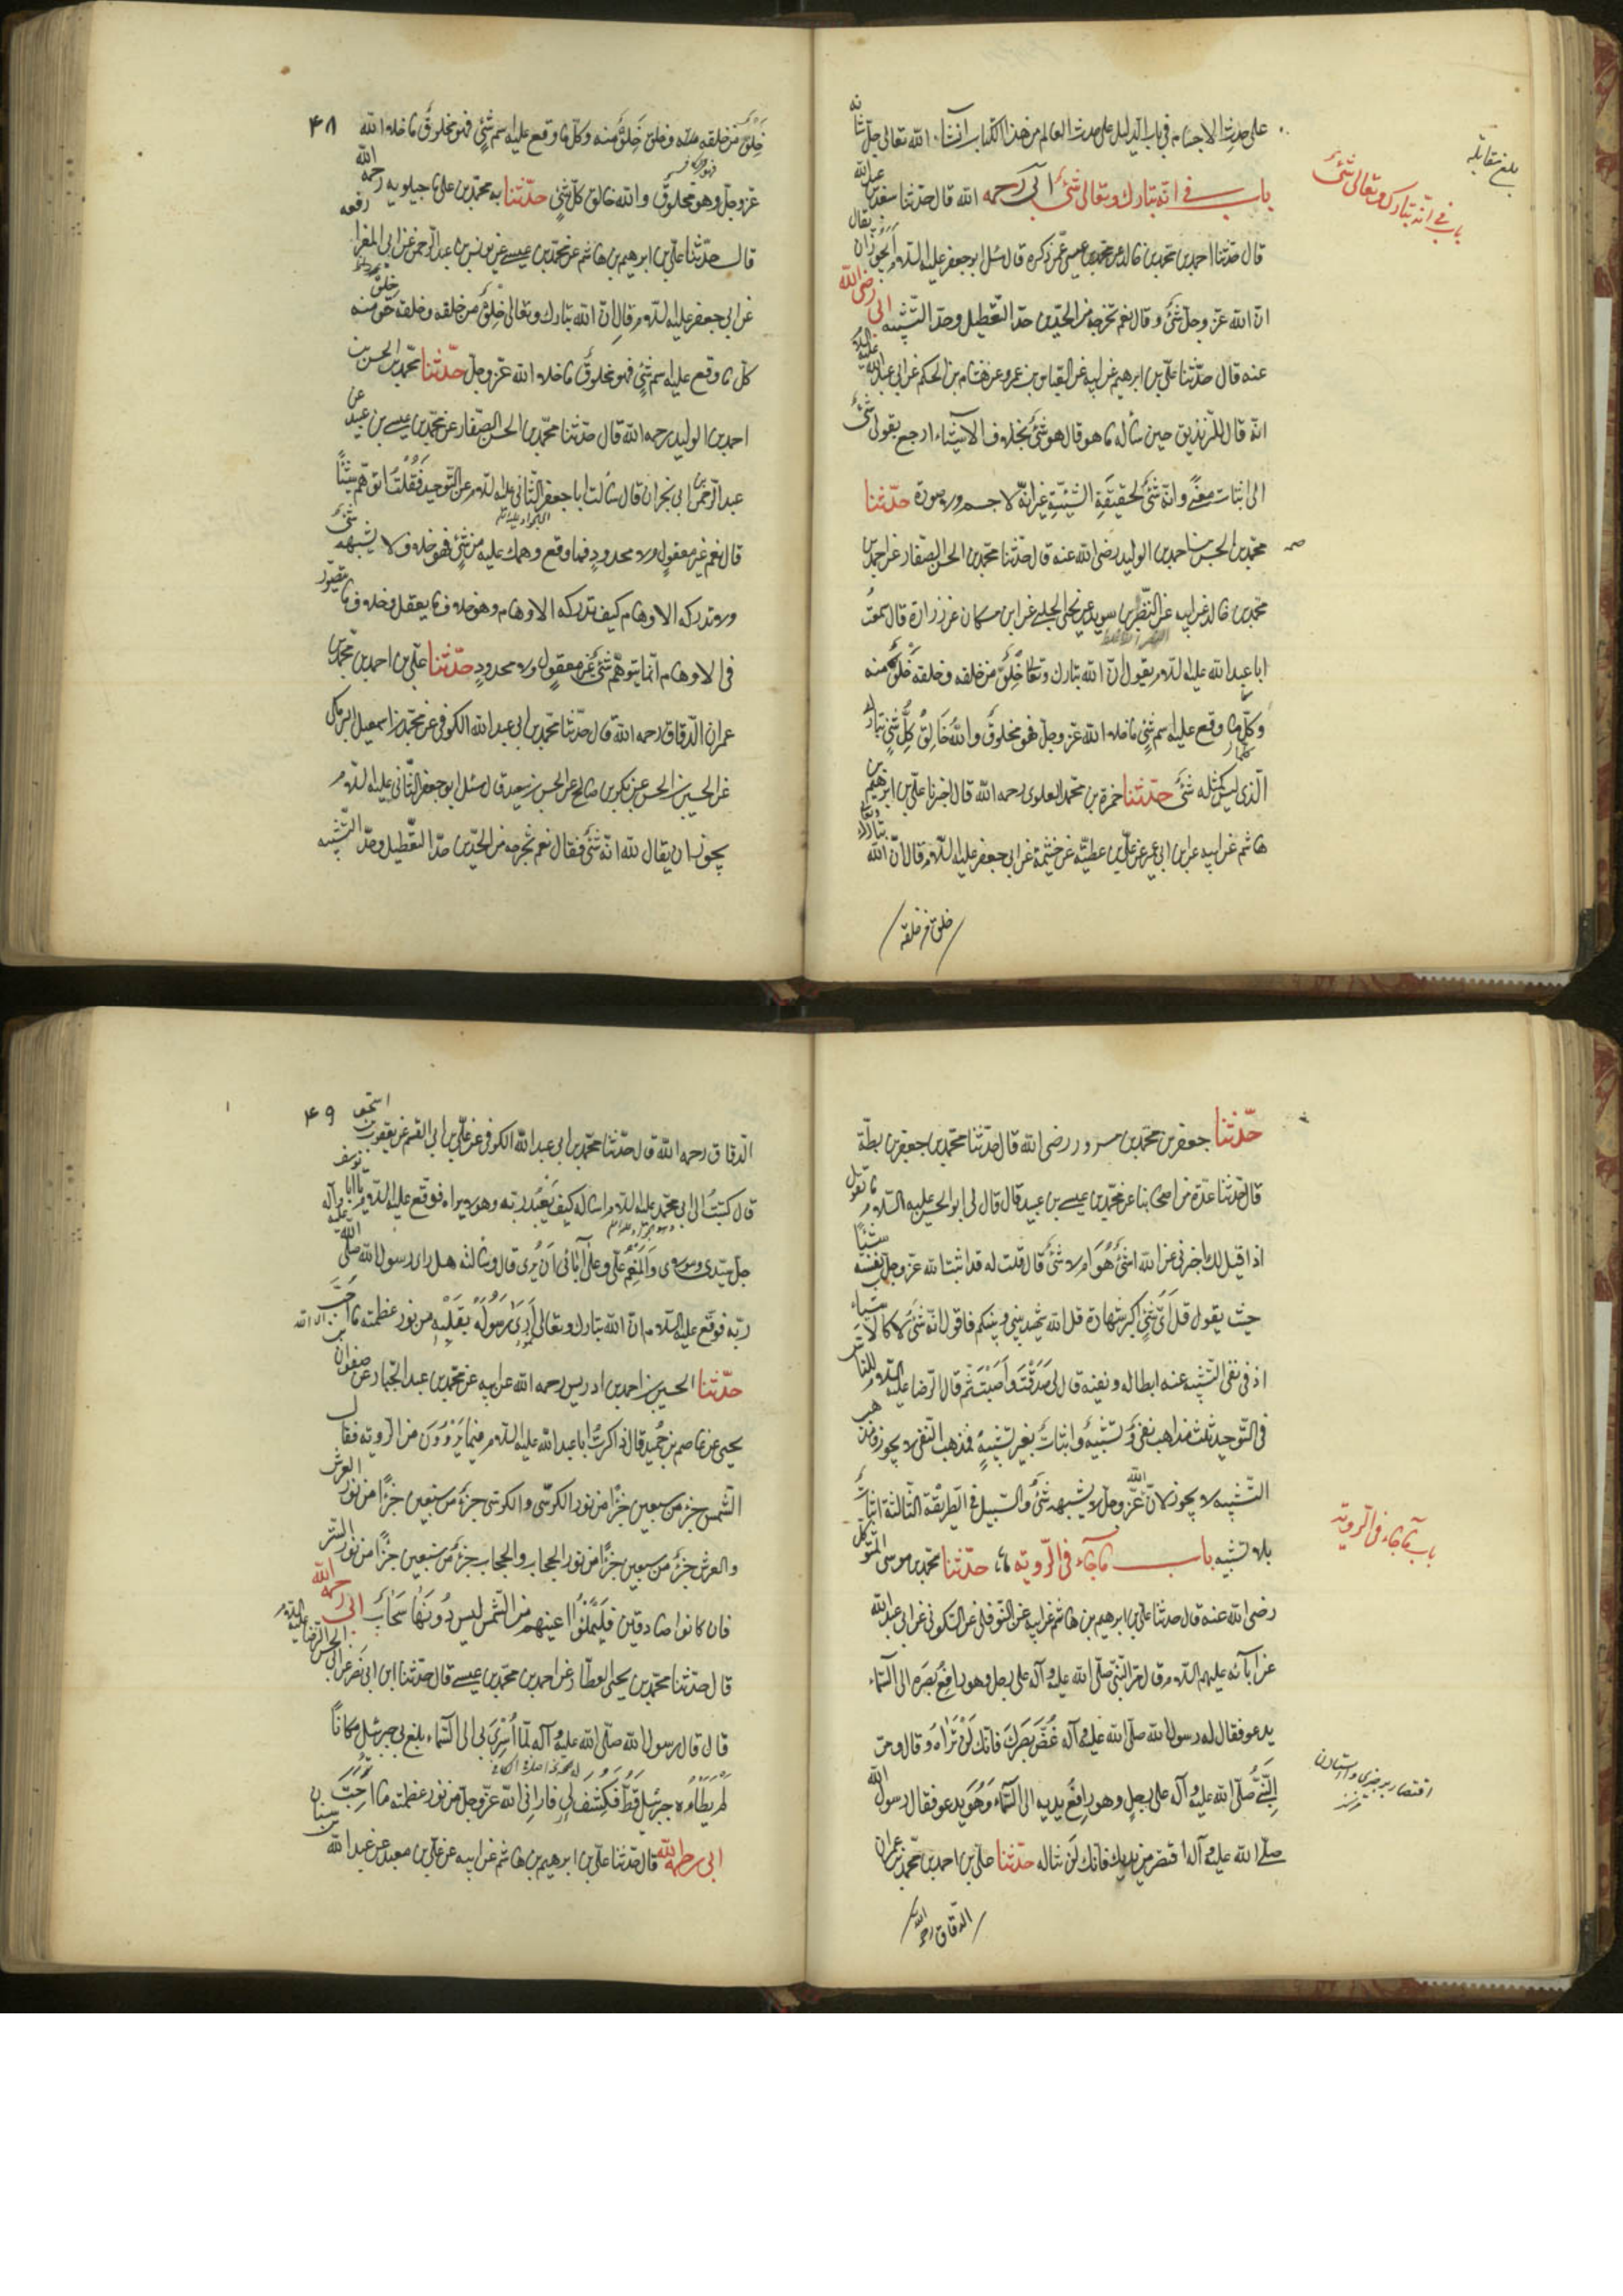 على حدث الاجسام فى باب الدليل على حدث العالم من هذا الكتاب انشاء الله تعالى جل ثنائه
باب فى انه تبارك وتعالى شئ ابى رحمه الله قال حدثنا سعد بن عبدالله
قال حدثنا احمد بن محمد بن خالد عن محمد بن عيسى عمن ذكره قال سئل ابو جعفر عليه السلام ايجوز ان يقال
ان الله عز وجل شئ وقال نعم تخرجه من الحدين حد التعطيل وحد التشبيه ابى رضى الله
عنه قال حدثنا على بن ابرهيم عن ابيه عن العباس بن عمرو عن هشام بن الحكم عن ابى عبدالله عليه السلام
انه قال للزنديق حين سأله ما هو قال هو شئ بخلاف الاشياء ارجع بقولى شئ
الى اثبات معنى وانه شئ لحقيقة الشيئية غير انه لا جسم ولا صورة حدثنا
محمد بن الحسن بن احمد بن الوليد رضى الله عنه قال حدثنا محمد بن الحسن الصفار عن احمد بن
محمد بن خالد عن ابيه عن النضر بن سويد عن يحيى الحلبى عن ابن مسكان عن زرارة قال سمعت
ابا عبدالله عليه السلام يقول ان الله تبارك وتعالى خلو من خلقه وخلقه خلو منه
وكل ما وقع عليه اسم شئ ما خلا الله عز وجل فهو مخلوق والله خالق كل شئ تبارك
الذى ليس كمثله شئ حدثنا حمزة بن محمد العلوى رحمه الله قال اخبرنا على بن ابرهيم بن
هاشم عن ابيه عن ابن ابى عمير عن على بن عطية عن خيثمة عن ابى جعفر عليه السلام قال ان الله تبارك وتعالى
خلو من خلقه
بلغ مقابلة
باب فى انه تبارك وتعالى شئ
۴۸
خلو من خلقه وخلقه خلو منه وكل ما وقع عليه اسم شئ فهو مخلوق ما خلا الله
عز وجل وهو مخلوق والله خالق كل شئ حدثنا به محمد بن على ماجيلويه رحمه الله
قال حدثنا على بن ابرهيم بن هاشم عن محمد بن عيسى عن يونس بن عبدالرحمن عن ابى المغرا رفعه
عن ابى جعفر عليه السلام قال ان الله تبارك وتعالى خلو من خلقه وخلقه خلو منه
كل ما وقع عليه اسم شئ فهو مخلوق ما خلا الله عز وجل حدثنا محمد بن الحسن بن
احمد بن الوليد رحمه الله قال حدثنا محمد بن الحسن الصفار عن محمد بن عيسى بن عبيد عن
عبدالرحمن بن ابى نجران قال سألت ابا جعفر الثانى عليه السلام عن التوحيد فقلت اتوهم شيئا
قال نعم غير معقول ولا محدود فما وقع وهمك عليه من شئ فهو خلافه لا يشبهه شئ
ولا تدركه الاوهام كيف تدركه الاوهام وهو خلاف ما يعقل وخلاف ما يتصور
فى الاوهام انما يتوهم شئ غير معقول ولا محدود حدثنا على بن احمد بن محمد بن
عمران الدقاق رحمه الله قال حدثنا محمد بن ابى عبدالله الكوفى عن محمد بن اسمعيل البرمكى
عن الحسين بن الحسن عن بكر بن صالح عن الحسين بن سعيد قال سئل ابو جعفر الثانى عليه السلام
يجوز ان يقال لله انه شئ فقال نعم تخرجه من الحدين حد التعطيل وحد التشبيه
حدثنا جعفر بن محمد بن مسرور رضى الله قال حدثنا محمد بن جعفر بن بطة
قال حدثنا عدة من اصحابنا عن محمد بن عيسى بن عبيد قال قال لى ابو الحسن عليه السلام ما تقول
اذا قيل لك اخبرنى عن الله اشئ هو ام لا شئ قال قلت له قد اثبت الله عز وجل نفسه شيئا
حيث يقول قل اى شئ اكبر شهادة قل الله شهيد بينى وبينكم فاقول انه شئ لا كالاشياء
اذ فى نفى الشيئية عنه ابطاله ونفيه قال لى صدقت واصبت ثم قال الرضا عليه السلام للناس
فى التوحيد ثلث مذاهب نفى وتشبيه واثبات بغير تشبيه فمذهب النفى لا يجوز ومذهب
التشبيه لا يجوز لان الله عز وجل لا يشبهه شئ والسبيل فى الطريقة الثالثة اثبات
بلا تشبيه باب ما جاء فى الروية حدثنا محمد بن موسى المتوكل
رضى الله عنه قال حدثنا على بن ابرهيم بن هاشم عن ابيه عن النوفلى عن السكونى عن ابى عبدالله
عن ابآئه عليهم السلام قال مر النبى صلى الله عليه وآله على رجل وهو رافع بصره الى السماء
يدعو فقال له رسول الله صلى الله عليه وآله غض بصرك فانك لن تراه وقال ومر
النبى صلى الله عليه وآله على رجل وهو رافع يديه الى السماء وهو يدعو فقال رسول الله
صلى الله عليه وآله اقصر من يديك فانك لن تناله حدثنا على بن احمد بن محمد بن عمران
الدقاق رحمه الله
باب ما جاء فى الروية
۴۹
الدقاق رحمه الله قال حدثنا محمد بن ابى عبدالله الكوفى عن على بن ابى القسم عن يعقوب بن اسحق
قال كتبت الى ابى محمد عليه السلام اسأله كيف يعبد ربه وهو لا يراه فوقع عليه السلام يا ابا يوسف
جل سيدى ومولاى والمنعم على وعلى آبائى ان يرى قال وسألته هل راى رسول الله صلى الله عليه وآله
ربه فوقع عليه السلام ان الله تبارك وتعالى ارى رسوله بقلبه من نور عظمته ما احب
حدثنا الحسين بن احمد بن ادريس رحمه الله عن ابيه عن محمد بن عبدالجبار عن صفوان بن
يحيى عن عاصم بن حميد قال ذاكرت ابا عبدالله عليه السلام فيما يروون من الروية فقال
الشمس جزء من سبعين جزءا من نور الكرسى والكرسى جزء من سبعين جزءا من نور العرش
والعرش جزء من سبعين جزءا من نور الحجاب والحجاب جزء من سبعين جزءا من نور الستر
فان كانوا صادقين فليملئوا اعينهم من الشمس ليس دونها سحاب ابى رحمه الله
قال حدثنا محمد بن يحيى العطار عن احمد بن محمد بن عيسى قال حدثنا ابن ابى نصر عن ابى الحسن الرضا عليه السلام
قال قال رسول الله صلى الله عليه وآله لما اسرى بى الى السماء بلغ بى جبرئيل مكانا
لم يطأه جبرئيل قط فكشف لى فارانى الله عز وجل من نور عظمته ما احب
ابى رحمه الله قال حدثنا على بن ابرهيم بن هاشم عن ابيه عن على بن معبد عن عبدالله بن سنان